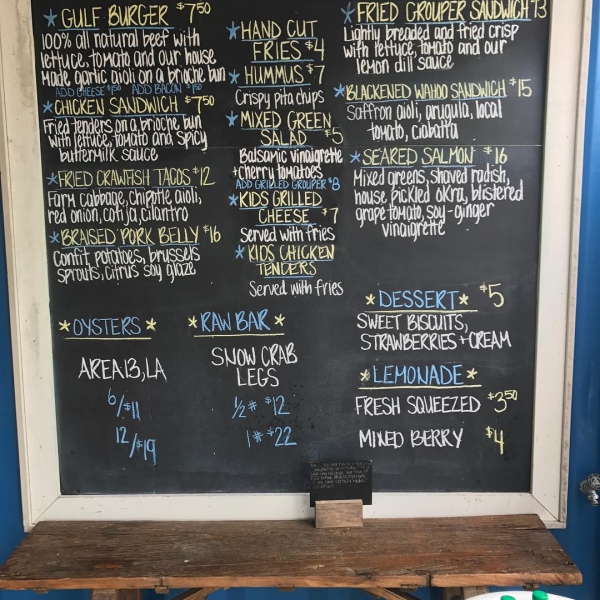 ★ GULF BURGER $7.50
100% all natural beef with
lettuce, tomato and our house
made garlic aioli on a brioche bun
ADD CHEESE $1.50 ADD BACON $1.50
★ CHICKEN SANDWICH $7.50
Fried tenders on a brioche bun
with lettuce, tomato and spicy
buttermilk sauce
★ FRIED CRAWFISH TACOS $12
Farm cabbage, chipotle aioli,
red onion, cotija, cilantro
★ BRAISED PORK BELLY $16
Confit potatoes, brussels
sprouts, citrus soy glaze
★ HAND CUT
FRIES $4
★ HUMMUS $7
Crispy pita chips
★ MIXED GREEN
SALAD $5
Balsamic vinaigrette
+ cherry tomatoes
ADD GRILLED GROUPER $8
★ KIDS GRILLED
CHEESE $7
served with fries
★ KIDS CHICKEN
TENDERS
Served with fries
★ FRIED GROUPER SANDWICH $13
Lightly breaded and fried crisp
with lettuce, tomato and our
lemon dill sauce
★ BLACKENED WAHOO SANDWICH $15
Saffron aioli, arugula, local
tomato, ciabatta
★ SEARED SALMON $16
Mixed greens, shaved radish,
house pickled okra, blistered
grape tomato, soy-ginger
vinaigrette
★ OYSTERS ★
AREA 13, LA
6/$11
12/$19
★ RAW BAR ★
SNOW CRAB
LEGS
½# $12
1# $22
★ DESSERT ★ $5
SWEET BISCUITS,
STRAWBERRIES + CREAM
★ LEMONADE ★
FRESH SQUEEZED $3.50
MIXED BERRY $4